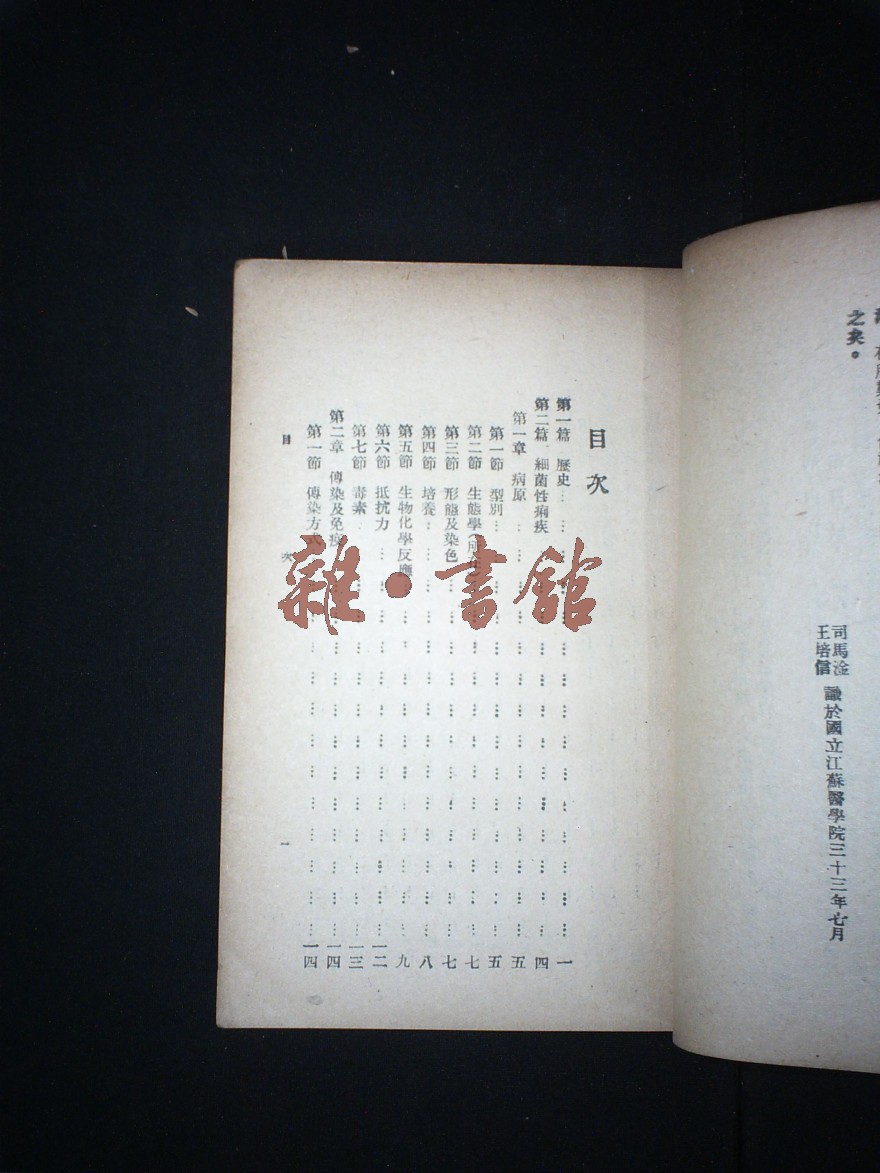 之矣。
司馬淦
王培信
識於國立江蘇醫學院三十三年七月
目次
第一篇 歷史 一
第二篇 細菌性痢疾 四
第一章 病原 五
第一節 型別 五
第二節 生態學 七
第三節 形態及染色 七
第四節 培養 八
第五節 生物化學反應 九
第六節 抵抗力 一二
第七節 毒素 一三
第二章 傳染及免疫 一四
第一節 傳染方式 一四
目次 一
雜·書館